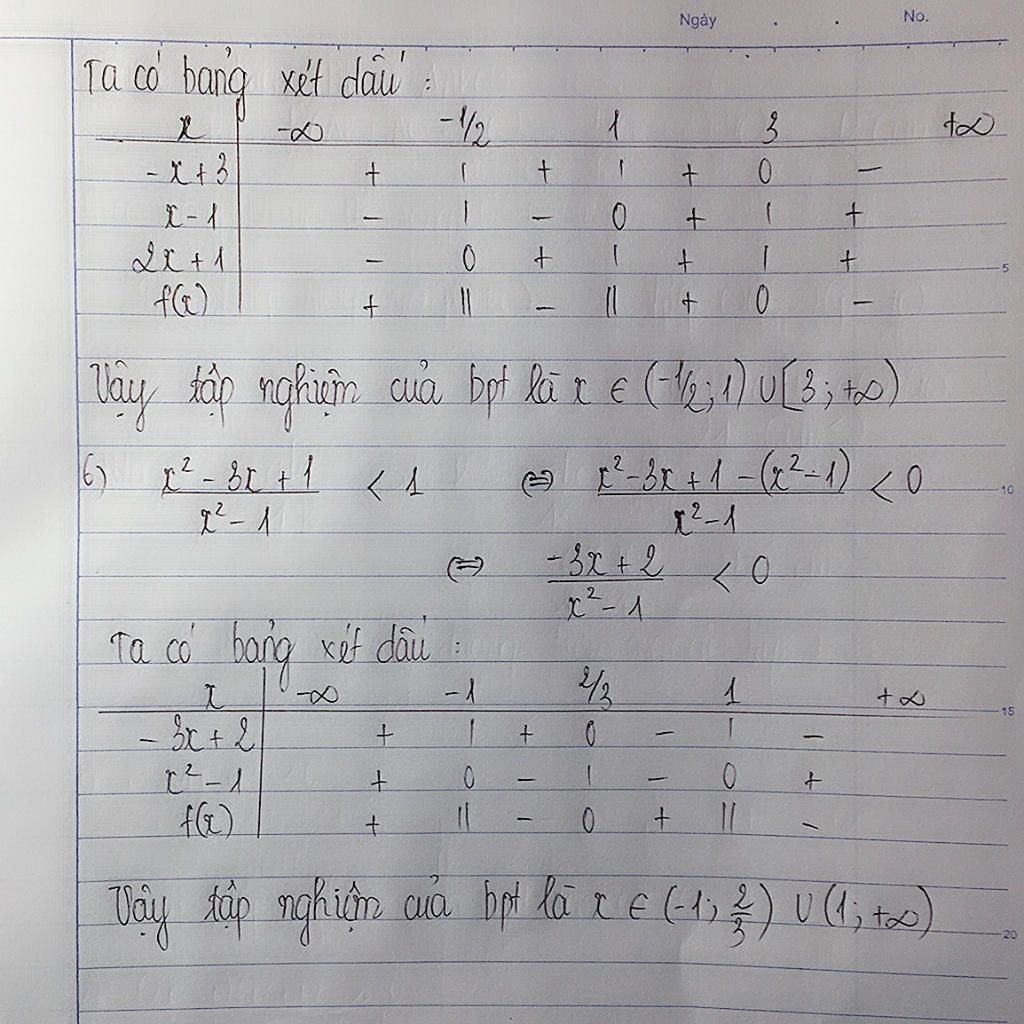 Ngày . . No.
Ta có bảng xét dấu :
x -∞ -1/2 1 3 +∞
-x+3 + | + | + 0 -
x-1 - | - 0 + | +
2x+1 - 0 + | + | +
5
f(x) + || - || + 0 -
Vậy tập nghiệm của bpt là x ∈ (-1/2; 1) ∪ [3; +∞)
6) \frac{x² - 3x + 1}{x² - 1} < 1 ⇔ \frac{x² - 3x + 1 - (x² - 1)}{x² - 1} < 0
10
⇔ \frac{-3x + 2}{x² - 1} < 0
Ta có bảng xét dấu :
x -∞ -1 2/3 1 +∞
15
-3x+2 + | + 0 - | -
x²-1 + 0 - | - 0 +
f(x) + || - 0 + || -
Vậy tập nghiệm của bpt là x ∈ (-1; \frac{2}{3}) ∪ (1; +∞)
20